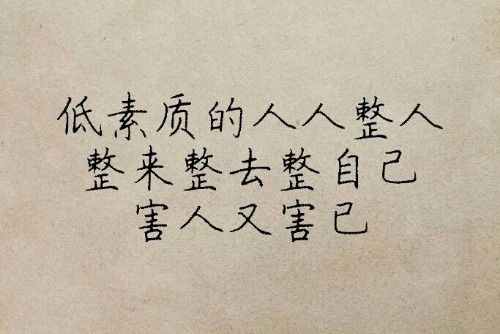 低素质的人人整人
整来整去整自己
害人又害己